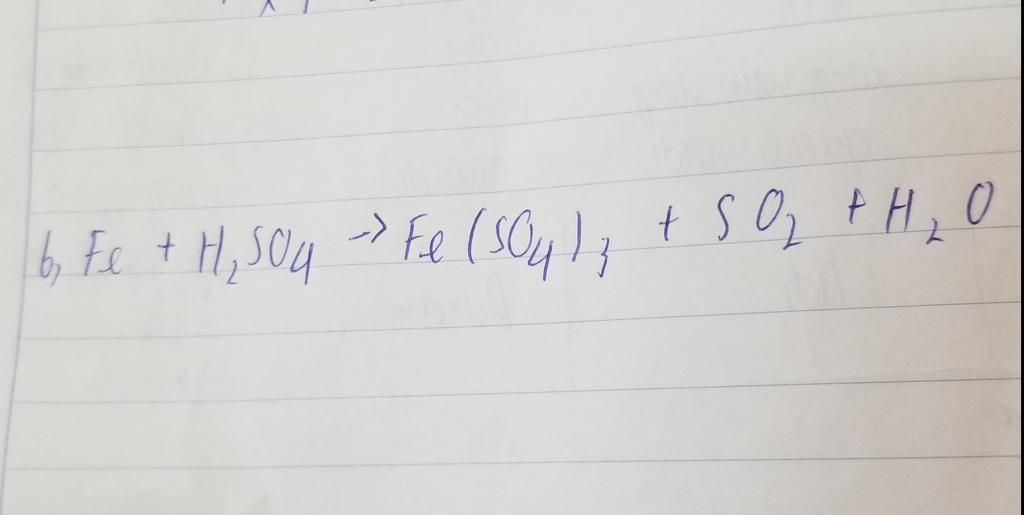 b, Fe + H₂SO₄ -> Fe(SO₄)₃ + SO₂ + H₂O